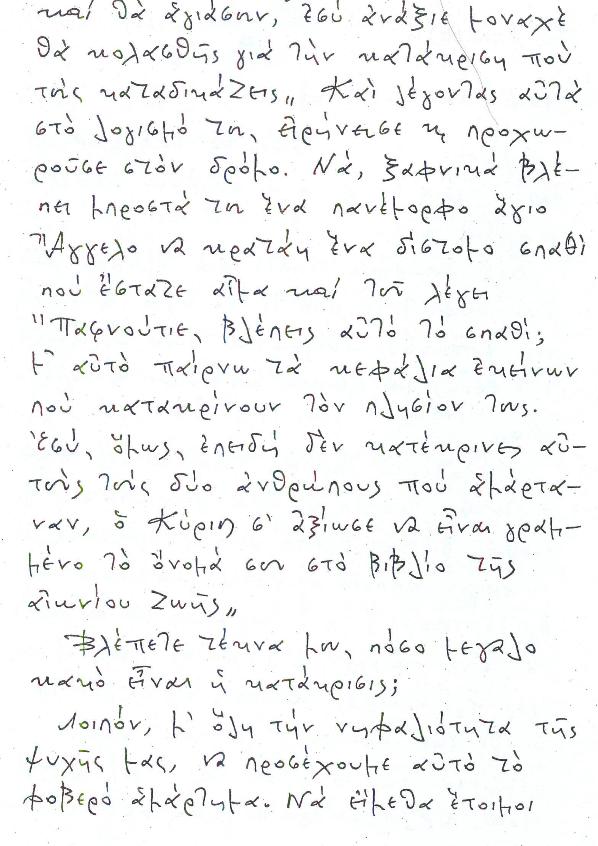 καί θά ἁγιάσουν, ἐσύ ἀνάξιε μοναχέ
θά κολασθῆς γιά τήν κατάκριση πού
τούς καταδικάζεις„ Καὶ λέγοντας αὐτὰ
στό λογισμό του, εἰρήνευσε κ προχω-
ροῦσε στόν δρόμο. Νά, ξαφνικά βλέ-
πει μπροστά του ἕνα πανέμορφο ἅγιο
Ἄγγελο νά κρατάῃ ἕνα δίστομο σπαθί
πού ἔσταζε αἷμα καί τοῦ λέγει
"Παφνούτιε, βλέπεις αὐτό τό σπαθί;
μ' αὐτὸ παίρνω τά κεφάλια ἐκείνων
πού κατακρίνουν τὸν πλησίον τους.
Ἐσύ, ὅμως, ἐπειδή δέν κατέκρινες αὐ-
τούς τούς δύο ἀνθρώπους πού ἁμάρτα-
ναν, ὁ Κύριος σ' ἀξίωσε νά εἶναι γραμ-
μένο τό ὄνομά σου στό βιβλίο τῆς
αἰωνίου Ζωῆς„
Βλέπετε τέκνα μου, πόσο μεγάλο
κακό εἶναι ἡ κατάκρισις;
Λοιπόν, μ' ὅλη τήν νηφαλιότητα τῆς
ψυχῆς μας, νά προσέχουμε αὐτό τὸ
φοβερό ἁμάρτημα. Νά εἴμεθα ἕτοιμοι